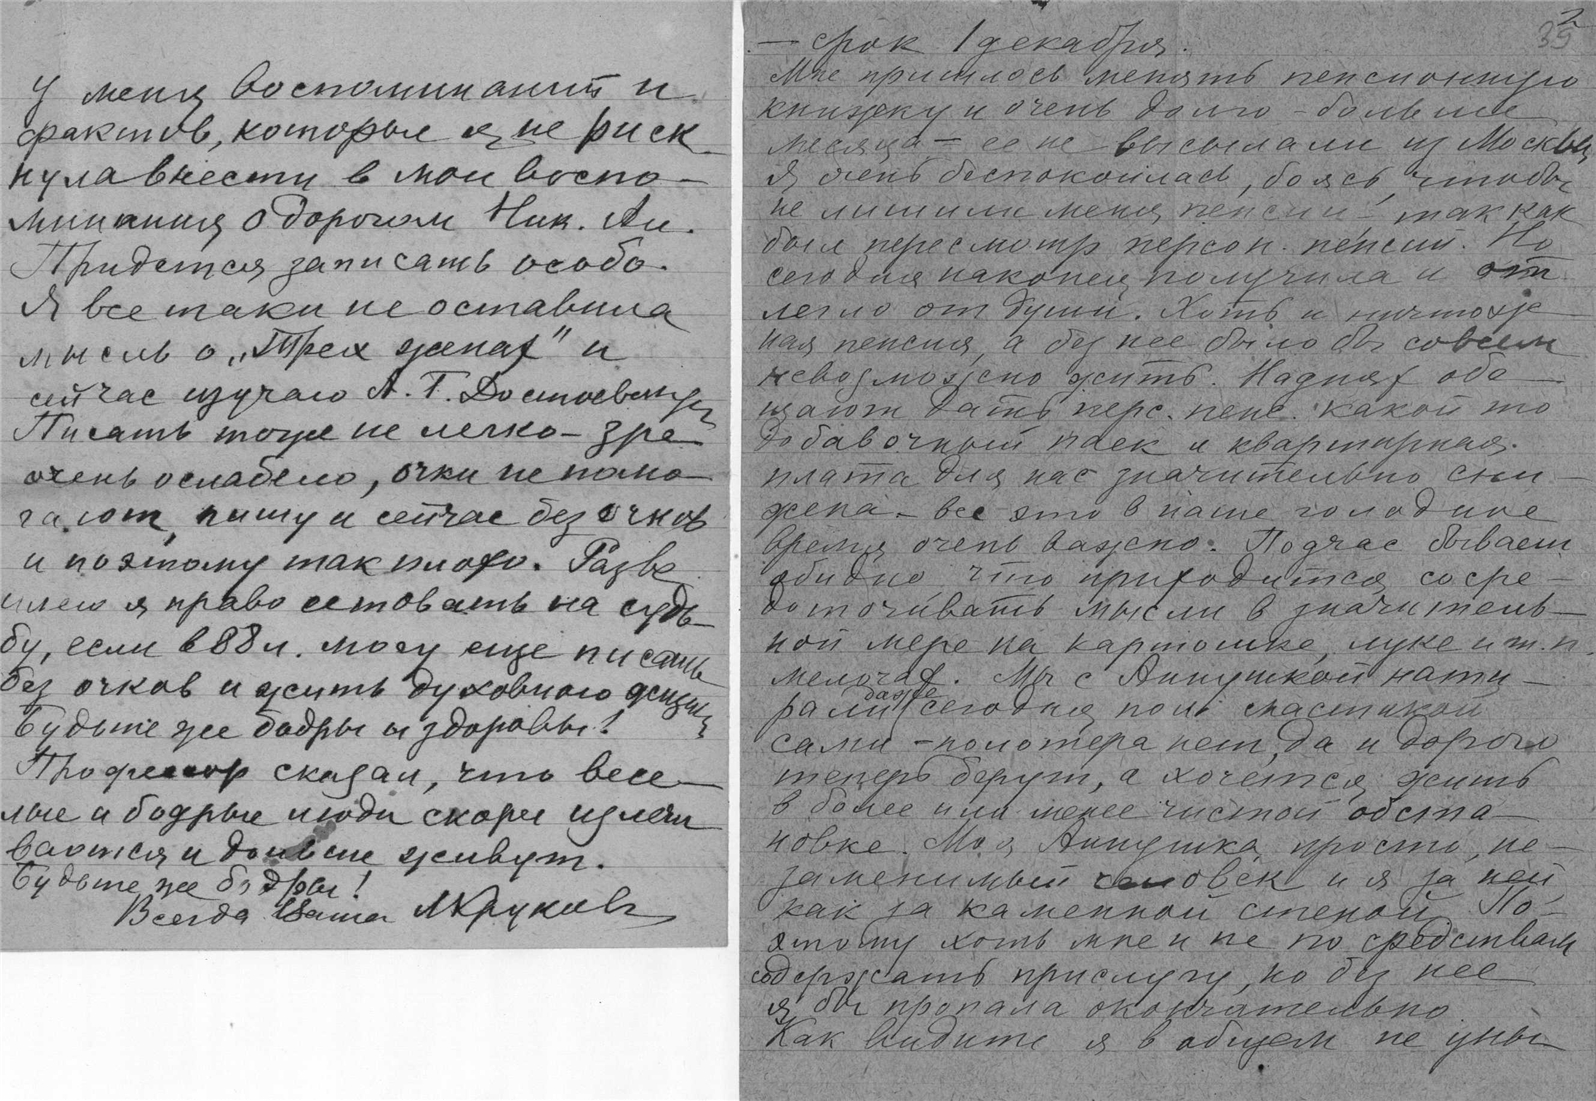 у меня воспоминаний и
фактов, которые я не риск
нула внести в мои воспо-
минания о дорогом Ник. Ан.
Придется записать особо.
Я все таки не оставила
мысль о „Трех женах" и
сейчас изучаю А. Г. Достоевскую
Писать тоже не легко - зре
очень ослабело, очки не помо-
гают, пишу и сейчас без очков
и поэтому так плохо. Разве
имею я право сетовать на судь-
бу, если в 88 л. могу еще писать
без очков и жить духовного жизнью
Будьте же бодры и здоровы!
Профессор сказал, что весе-
лые и бодрые люди скорее излечи
ваются и дольше живут.
Будьте же бодры!
Всегда Ваша
2
39
- срок 1 декабря.
Мне пришлось менять пенсионную
книжку и очень долго - больше
месяца - ее не высылали из Москвы
Я очень беспокоилась, боясь, чтобы
не лишили меня пенсии - так как
был пересмотр персон. пенсий. Но
сегодня наконец получила и от
легло от души. Хоть и ничтож
ная пенсия, а без нее было бы совсем
невозможно жить. На днях обе-
щают дать перс. пенс. какой то
добавочный паек и квартирная
плата для нас значительно сни-
жена - все это в наше голодное
время очень важно. Подчас бывает
обидно что приходится сосре-
доточивать мысли в значитель-
ной мере на картошке, луке и т.п.
мелочах. Мы с Аннушкой нати-
рали даже сегодня полы мастикой
сами - полотера нет, да и дорого
теперь берут, а хочется жить
в более или менее чистой обста-
новке. Моя Аннушка просто не-
заменимый человек и я за ней,
как за каменной стеной. По-
этому хоть мне и не по средствам
содержать прислугу, но без нее
я бы пропала окончательно.
Как видите я в общем не уны-